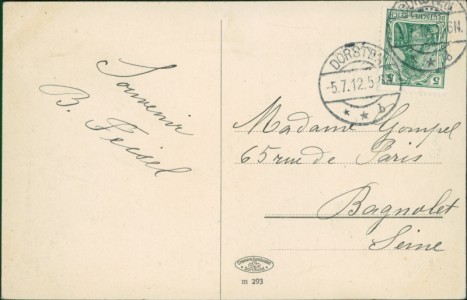 Souvenir
B. Feisel
DORSTEN
-5.7.12.5
* * b
DORSTEN
* b
5 5
Madame Gompel
65 rue de Paris
Bagnolet
Seine
m 293